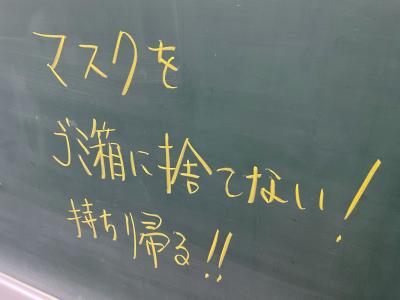 マスクを
ゴミ箱に捨てない!
持ち帰る!!